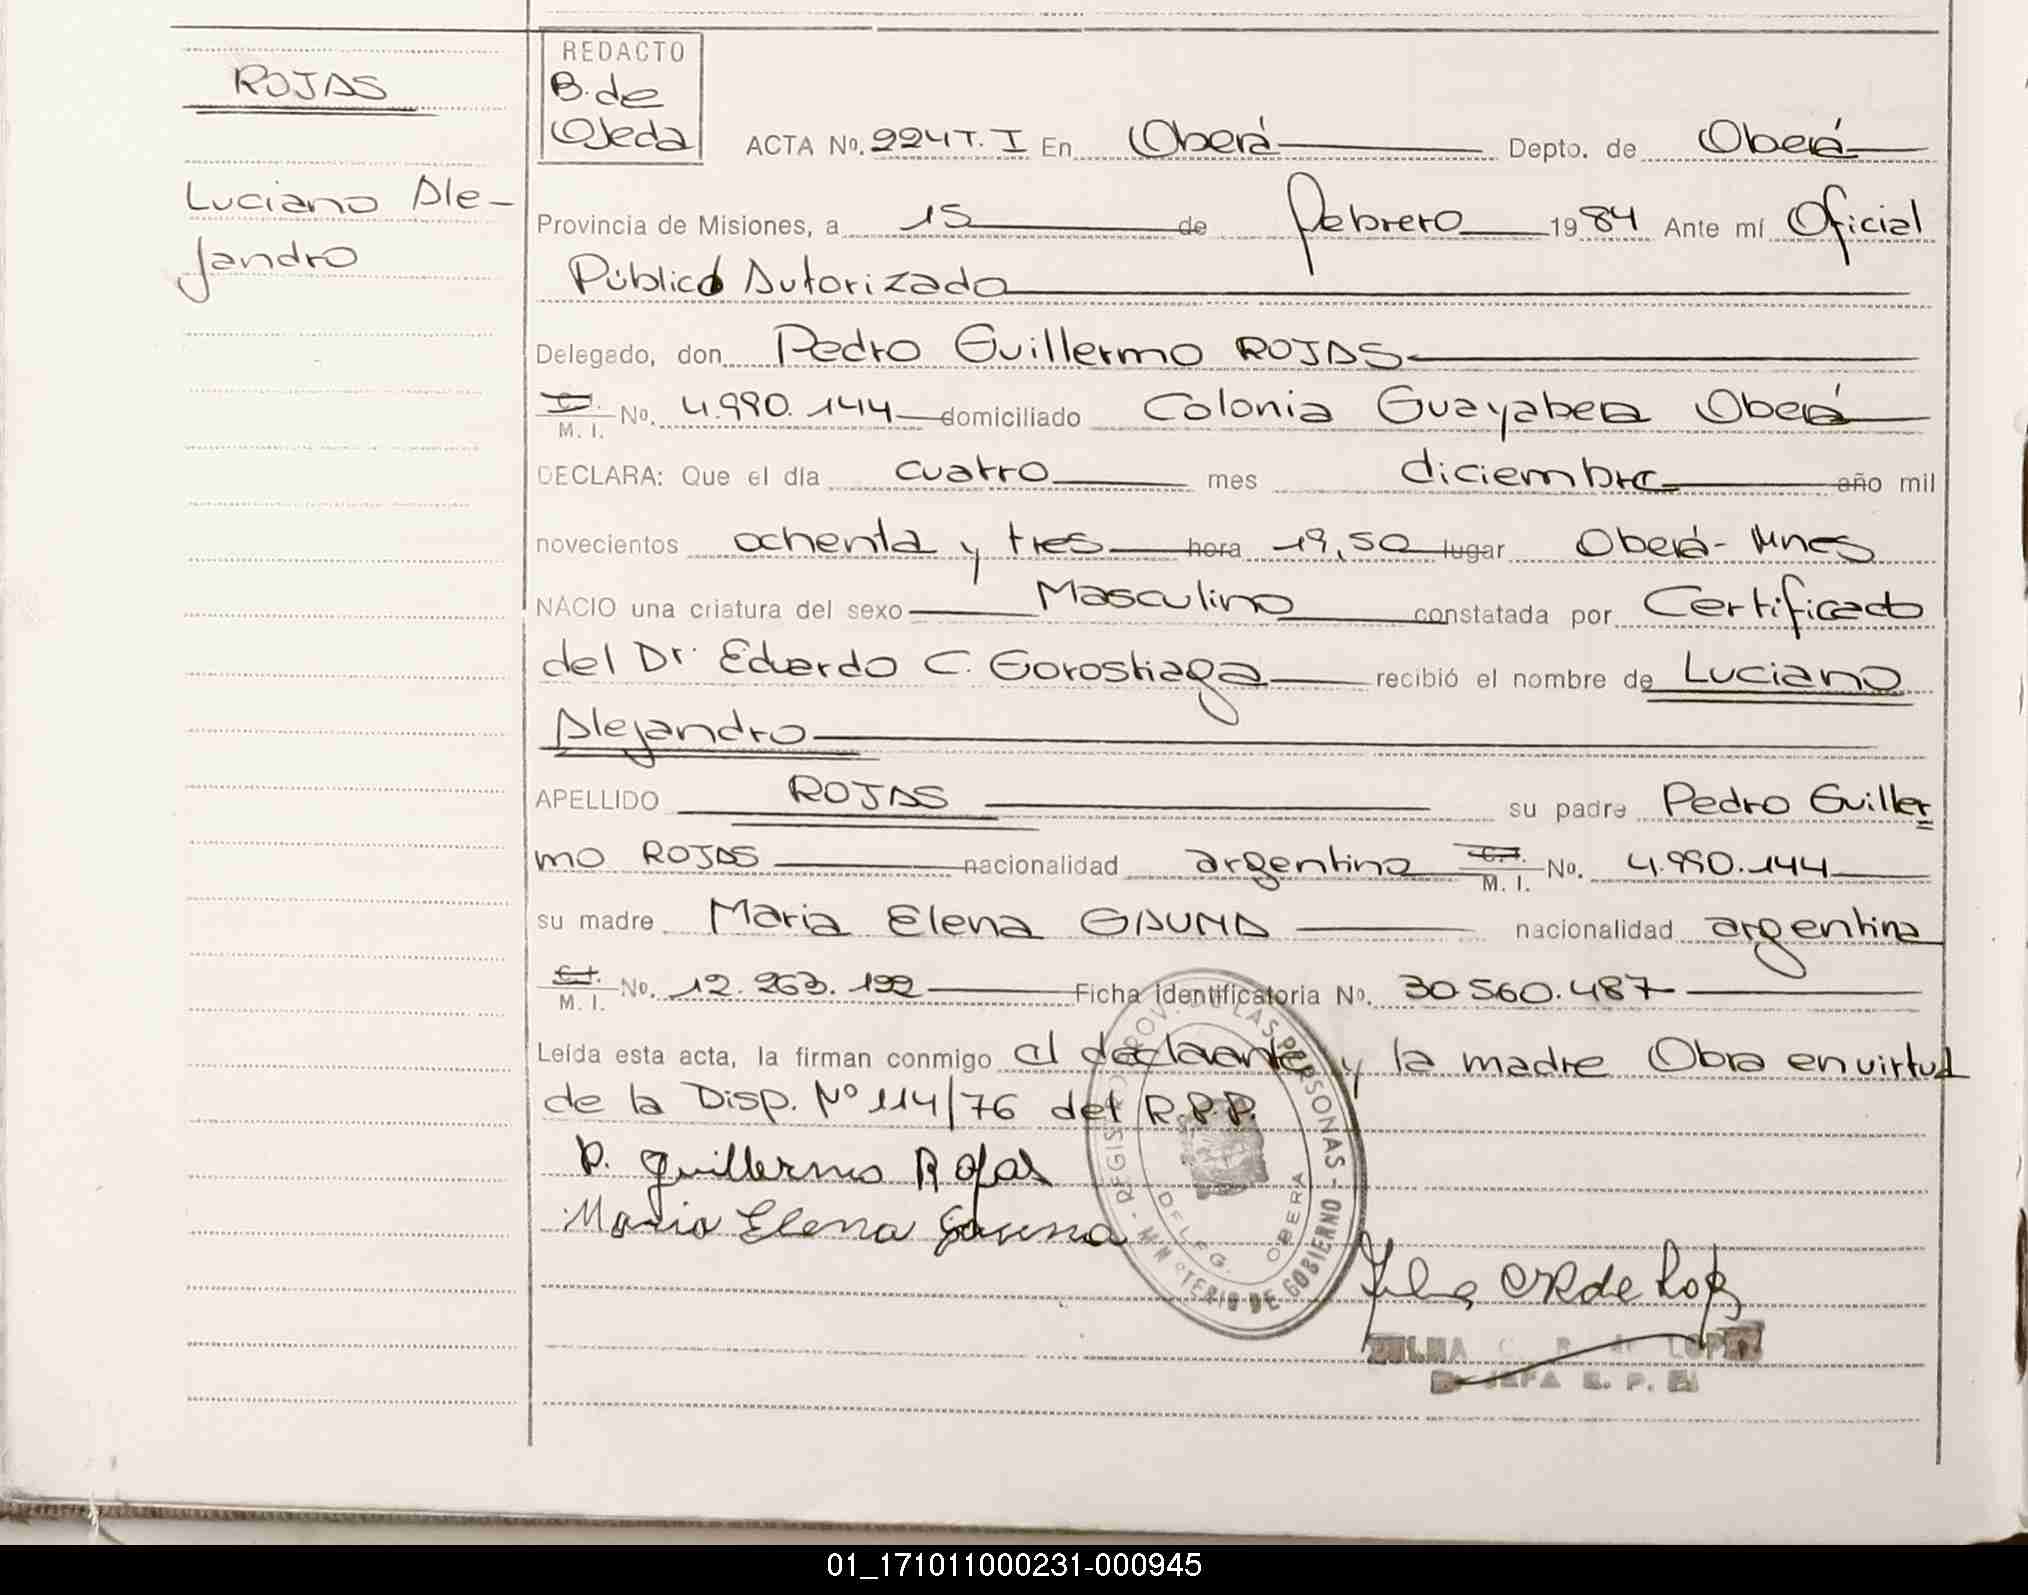 ROJAS
Luciano Ale-
jandro
REDACTO
B. de
Ojeda
ACTA No. 224 T. I En Oberá Depto. de Oberá
Provincia de Misiones, a 15 de febrero 1984 Ante mí Oficial
Público Autorizado
Delegado, don Pedro Guillermo ROJAS
C.I. M. I. No. 4.990.144 domiciliado Colonia Guayabera Oberá
DECLARA: Que el día cuatro mes diciembre año mil
novecientos ochenta y tres hora 19,50 lugar Oberá - Mnes
NACIO una criatura del sexo Masculino constatada por Certificado
del Dr. Eduardo C. Gorostiaga recibió el nombre de Luciano
Alejandro
APELLIDO ROJAS su padre Pedro Guiller
mo ROJAS nacionalidad argentina C.I. M. I. No. 4.990.144
su madre Maria Elena GAUNA nacionalidad argentina
C.I. M. I. No. 12.263.192 Ficha identificatoria No. 30.560.487
Leída esta acta, la firman conmigo el declarante y la madre Obra en virtud
de la Disp. Nº 114/76 del R.P.P.
P. Guillermo Rojas
Maria Elena Gauna
REGISTRO PROV. DE LAS PERSONAS - MINISTERIO DE GOBIERNO -
DELEG. OBERA
C. R. de Lopez
C. R. de LOPEZ
JEFA
01_171011000231-000945